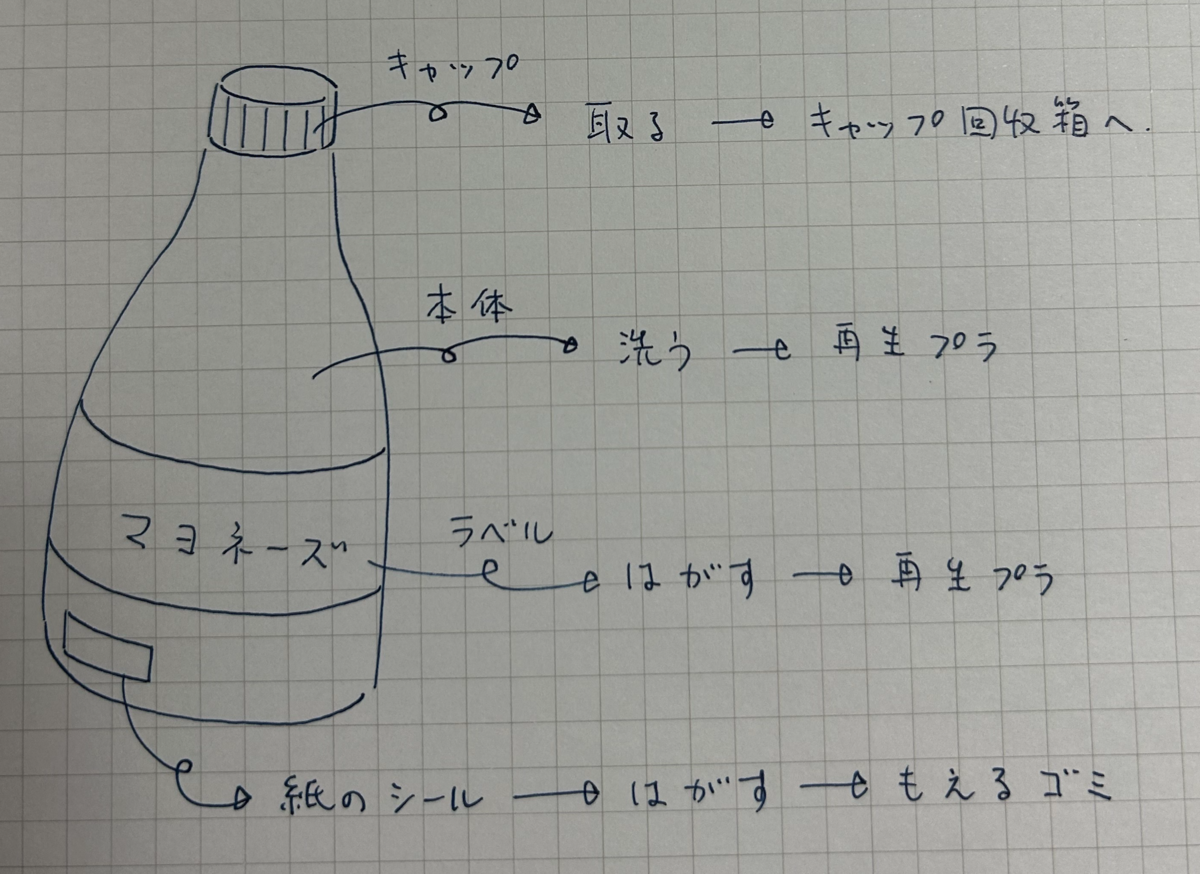 キャップ
取る → キャップ回収箱へ.
本体
洗う → 再生プラ
マヨネーズ
ラベル
はがす → 再生プラ
紙のシール → はがす → もえるゴミ